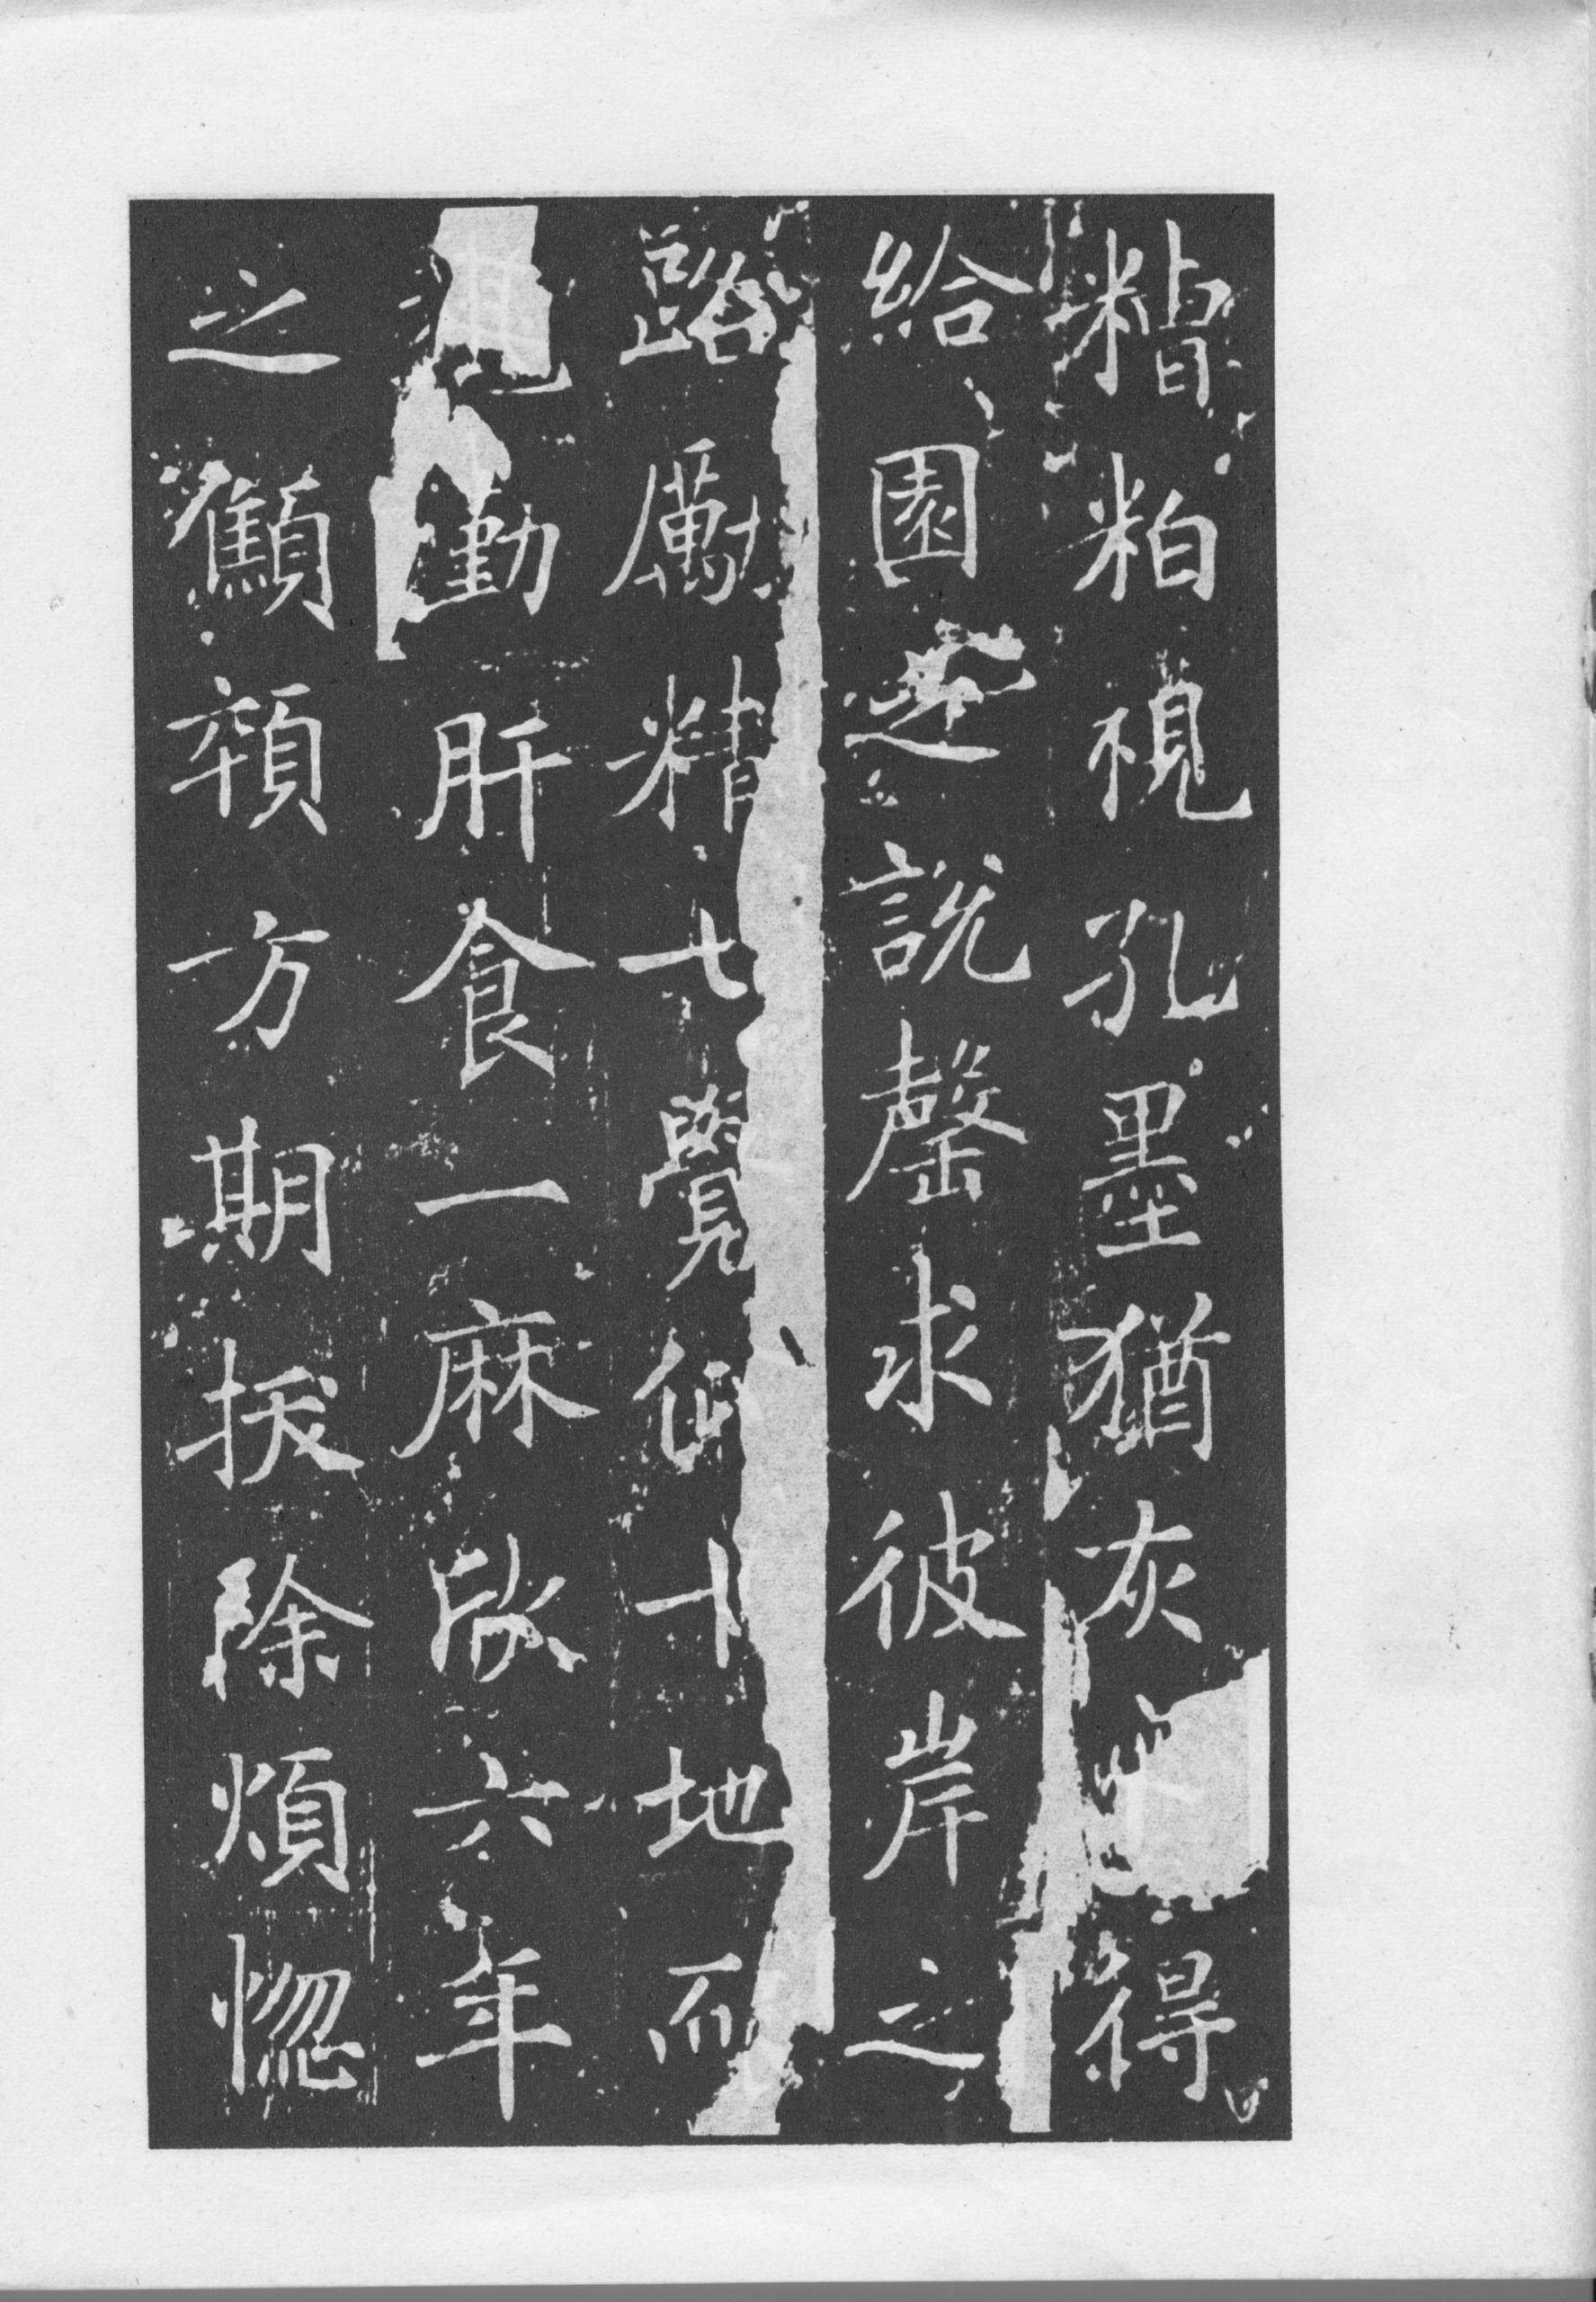 糟粕視孔墨猶灰得
給園之說罄求彼岸之
路勵精七覺仰十地而
勤肝食一麻欽六年
之顦顇方期拔除煩惱